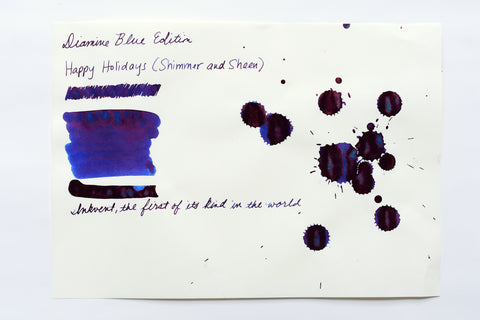 Diamine Blue Edition
Happy Holidays (Shimmer and Sheen)
Inkvent, the first of its kind in the world